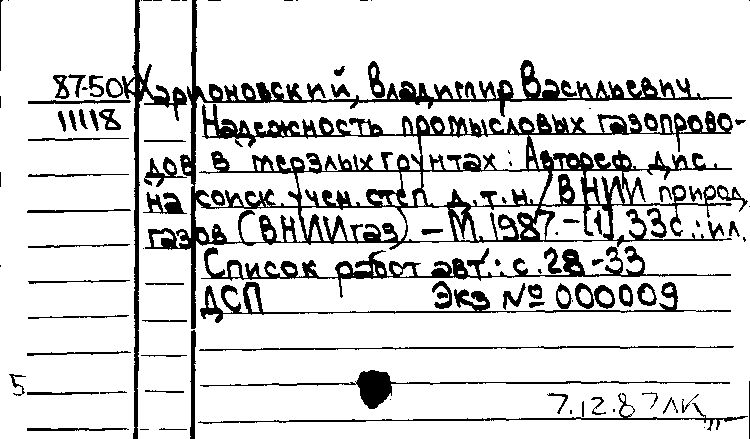 87-50К Харионовский, Владимир Васильевич.
11118
Надежность промысловых газопрово-
дов в мерзлых грунтах: Автореф. дис.
на соиск. учен. степ д.т.н. / ВНИИ природ.
газов (ВНИИгаз). – М. 1987. – [1], 33с.: ил.
Список работ авт.: с. 28-33
ДСП Экз № 000009
5
7.12.87 ЛК